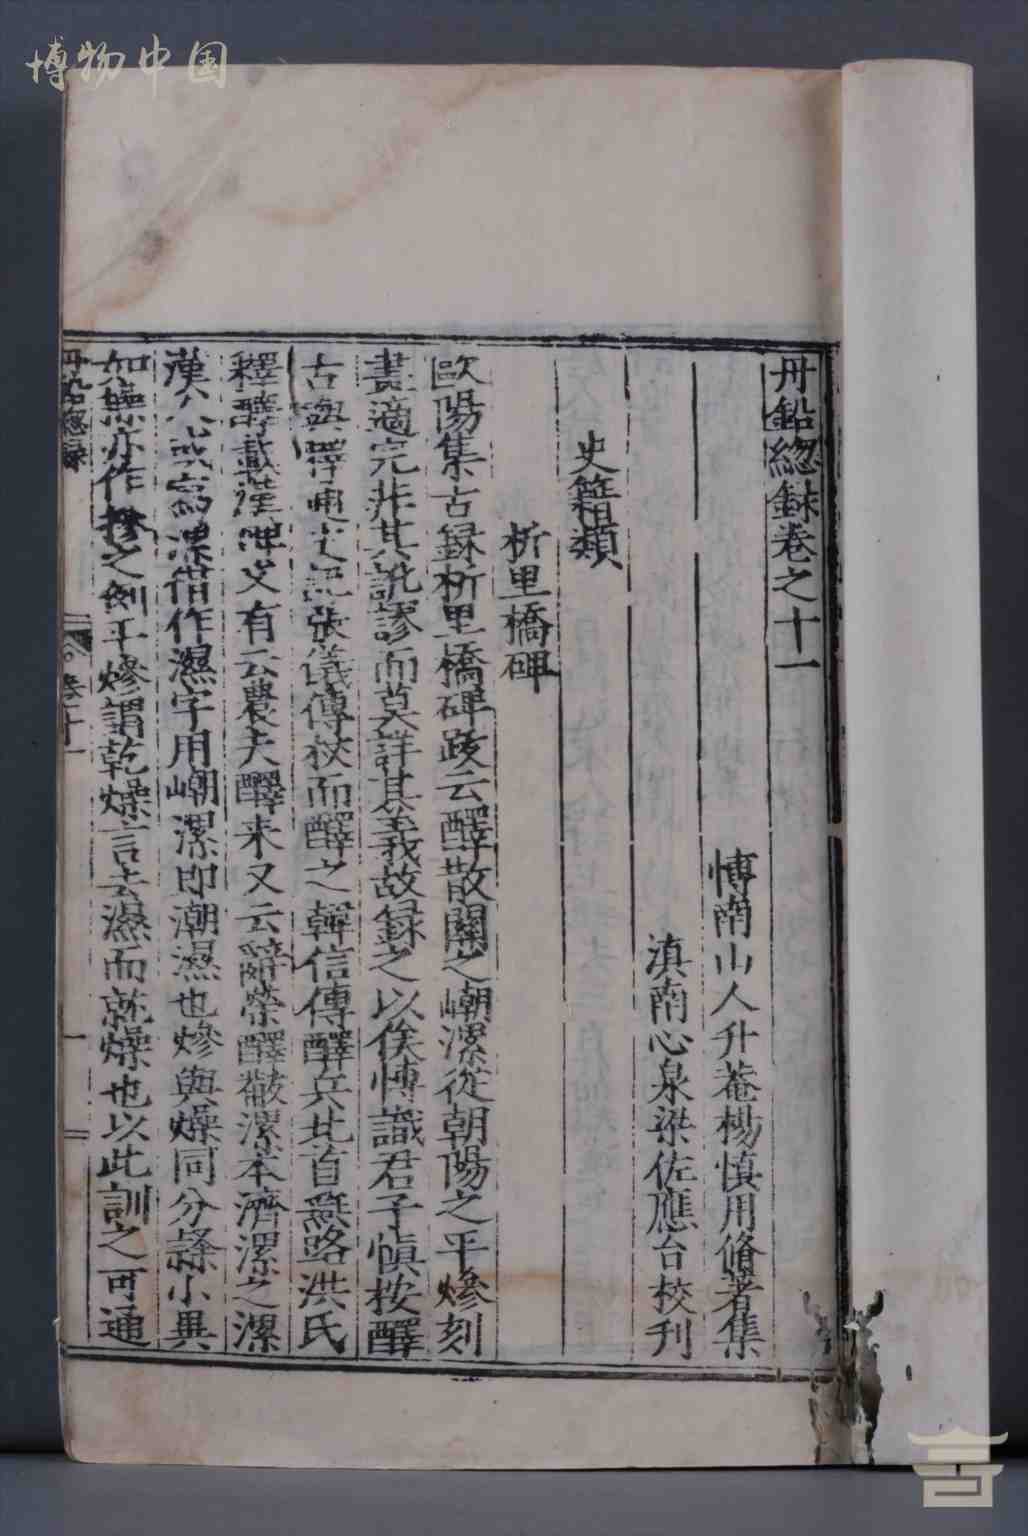 博物中国
丹鉛緫錄卷之十一
博南山人升菴楊慎用脩著集
滇南心泉梁佐應台校刊
史籍類
析里橋碑
歐陽集古録析里橋碑跋云醳散關之嶃漯從朝陽之平燯刻
畫適完非其訛謬而莫詳其義故録之以俟博識君子愼按醳
古與釋通史記張儀傳杖而醳之韓信傳醳兵北首燕路洪氏
釋醳載漢碑文有云農夫醳耒又云辭榮醳黻漯本濟漯之漯
漢人或寫漯借作濕字用嶃漯即潮濕也燯與燥同分隷小異
如㯥亦作摻之例平燯謂乾燥言去濕而就燥也以此訓之可通
丹鉛緫録
卷十一
一